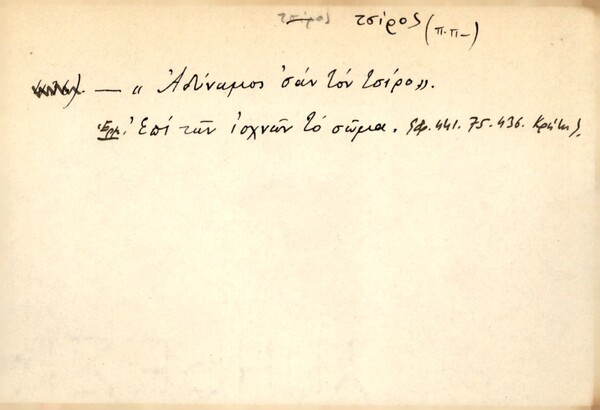 τσίρος τσίρος (π.π-)
— « Ἀδύναμος σάν τόν τσίρο».
Ἑρμ. Ἐπί τῶν ἰσχνῶν τό σῶμα. (φ. 441. 75. 436. Κρήτη).